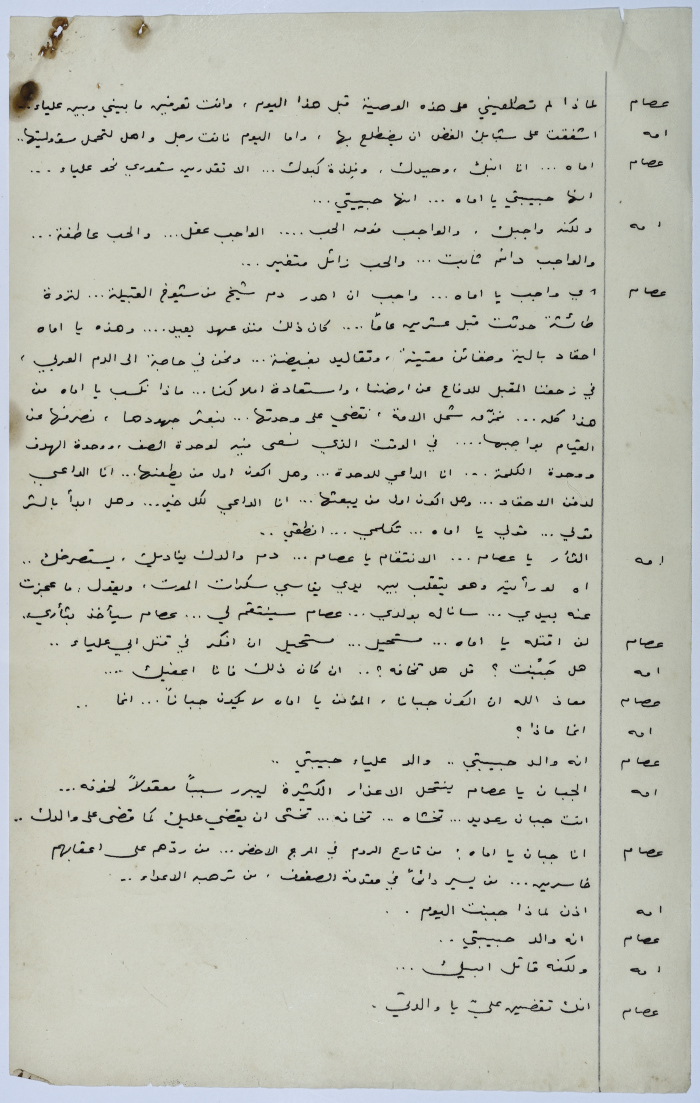 عصام لماذا لم تطلعيني على هذه الوصية قبل هذا اليوم ، وانت تعرفين ما بيني وبين علياء ..
امه اشفقت على شبابك الغض ان يضطلع بها ، واما اليوم فانت رجل واهل لتحمل مسؤوليتها ..
عصام اماه ... انا ابنك ، وحيدك ، وفلذة كبدك ... الا تقدرين شعوري نحو علياء ...
انها حبيبتي يا اماه ... انها حبيبتي ...
امه ولكنه واجبك ، والواجب فوق الحب .... الواجب عقل ... والحب عاطفة ...
والواجب دائم ثابت ... والحب زائل متغير ...
عصام اي واجب يا اماه ... واجب ان اهدر دم شيخ من شيوخ القبيلة ... لنزوة
طائشة حدثت قبل عشرين عاماً .... كان ذلك منذ عهد بعيد .... وهذه يا اماه
احقاد بالية وضغائن مقيتة ، وتقاليد بغيضة ... ونحن في حاجة الى الدم العربي ،
في زحفنا المقبل للدفاع عن ارضنا ، واستعادة املاكنا ... ماذا نكسب يا اماه من
هذا كله ... نمزق شمل الامة ، نقضي على وحدتها ... نبعثر جهودها ، نصرفها عن
القيام بواجبها .... في الوقت الذي نسعى فيه لوحدة الصف ، ووحدة الهدف
ووحدة الكلمة ... انا الداعي للوحدة ... وهل اكون اول من يطعنها ... انا الداعي
لدفن الاحقاد ... وهل اكون اول من يبعثها ... انا الداعي لكل خير ... وهل ابدأ بالشر
قولي ... قولي يا اماه ... تكلمي ... انطقي ..
امه الثأر يا عصام ... الانتقام يا عصام ... دم والدك يناديك ، يستصرخك ..
اه لو رأيته وهو يتقلب بين يدي يقاسي سكرات الموت ، ويقول : ما عجزت
عنه بيدي ... سأناله بولدي ... عصام سينتقم لي ... عصام سيأخذ بثأري .
عصام لن اقتله يا اماه ... مستحيل ... مستحيل ان افكر في قتل ابي علياء ..
امه هل جَبُنت ؟ قل هل تخافه ؟ .. ان كان ذلك فانا اعفيك ....
عصام معاذ الله ان اكون جبانا ، المؤمن يا اماه لا يكون جباناً ... انما
امه انما ماذا ؟
عصام انه والد حبيبتي .. والد علياء حبيبتي ..
امه الجبان يا عصام ينتحل الاعذار الكثيرة ليبرر سبباً معقولاً لخوفه ...
انت جبان رعديد ... تخشاه ... تخافه ... تخشى ان يقضي عليك كما قضى على والدك ..
عصام انا جبان يا اماه ؛ من قارع الروم في المرج الاخضر ... من ردّهم على اعقابهم
خاسرين ... من يسير دائماً في مقدمة الصفوف ، من ترهبه الاعداء ..
امه اذن لماذا جبنت اليوم ..
عصام انه والد حبيبتي ..
امه ولكنه قاتل ابيك ...
عصام انك تقضين عليّ يا والدتي .